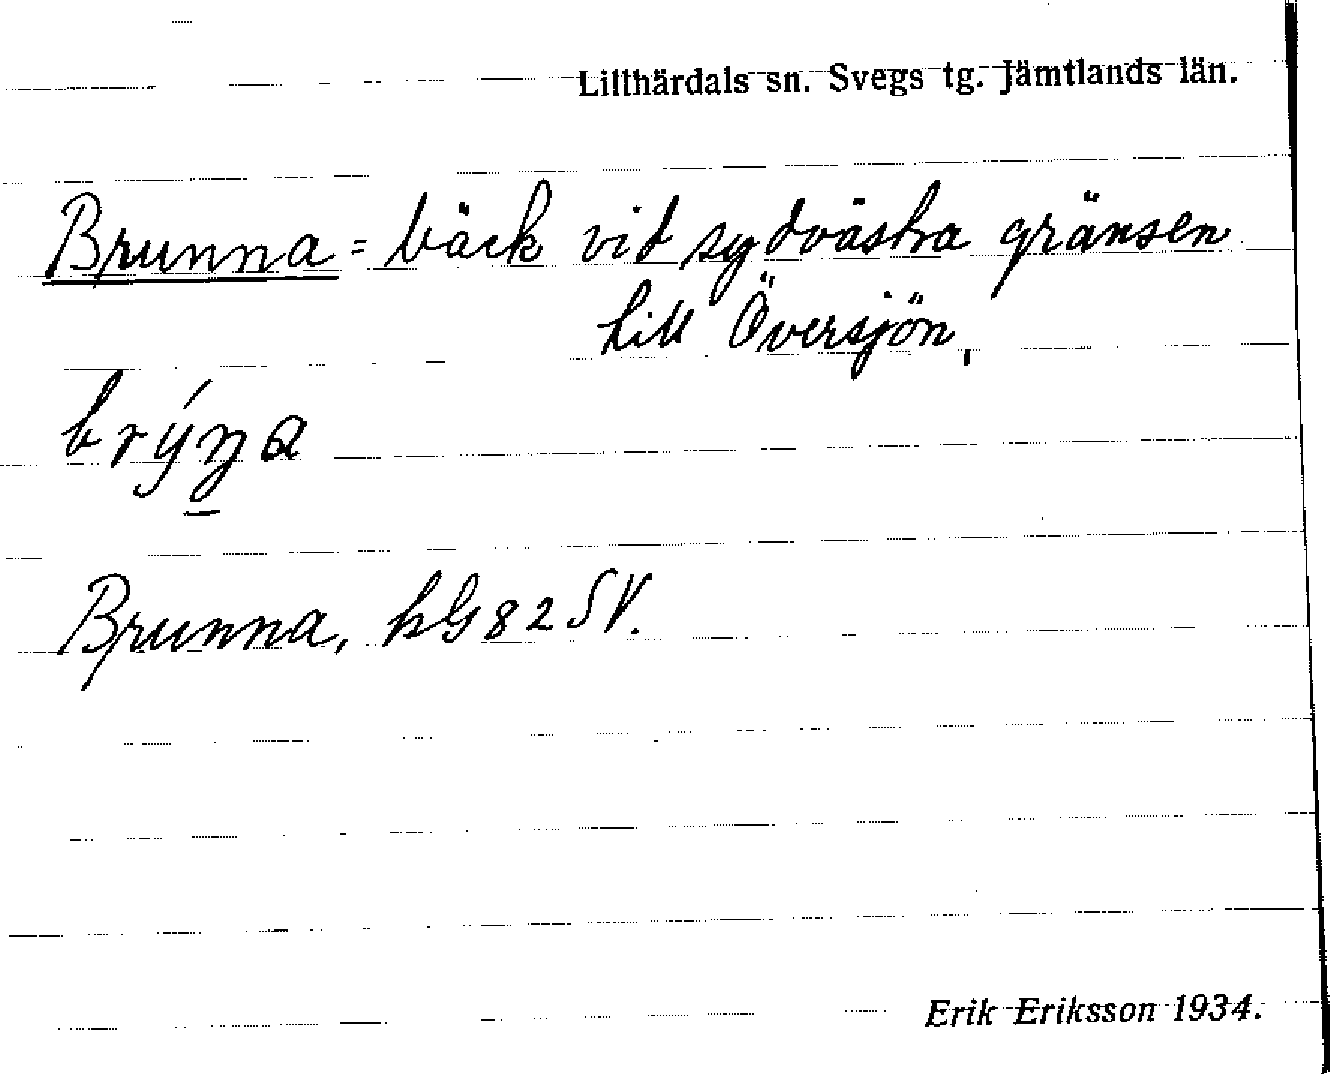 Lillhärdals sn. Svegs tg. Jämtlands län.
Brunna = bäck vid sydvästra gränsen
till Översjön,
Brunna, hG82 SV.
Erik Eriksson 1934.